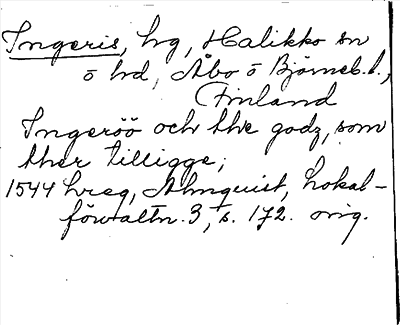 Ingeris, hg, Halikko sn
o hd, Åbo o Björneb. l.,
Finland
Ingeröö och the godz, som
ther tilligge;
1544 hreg, Almquist, Lokal-
förvaltn. 3, s. 172. orig.